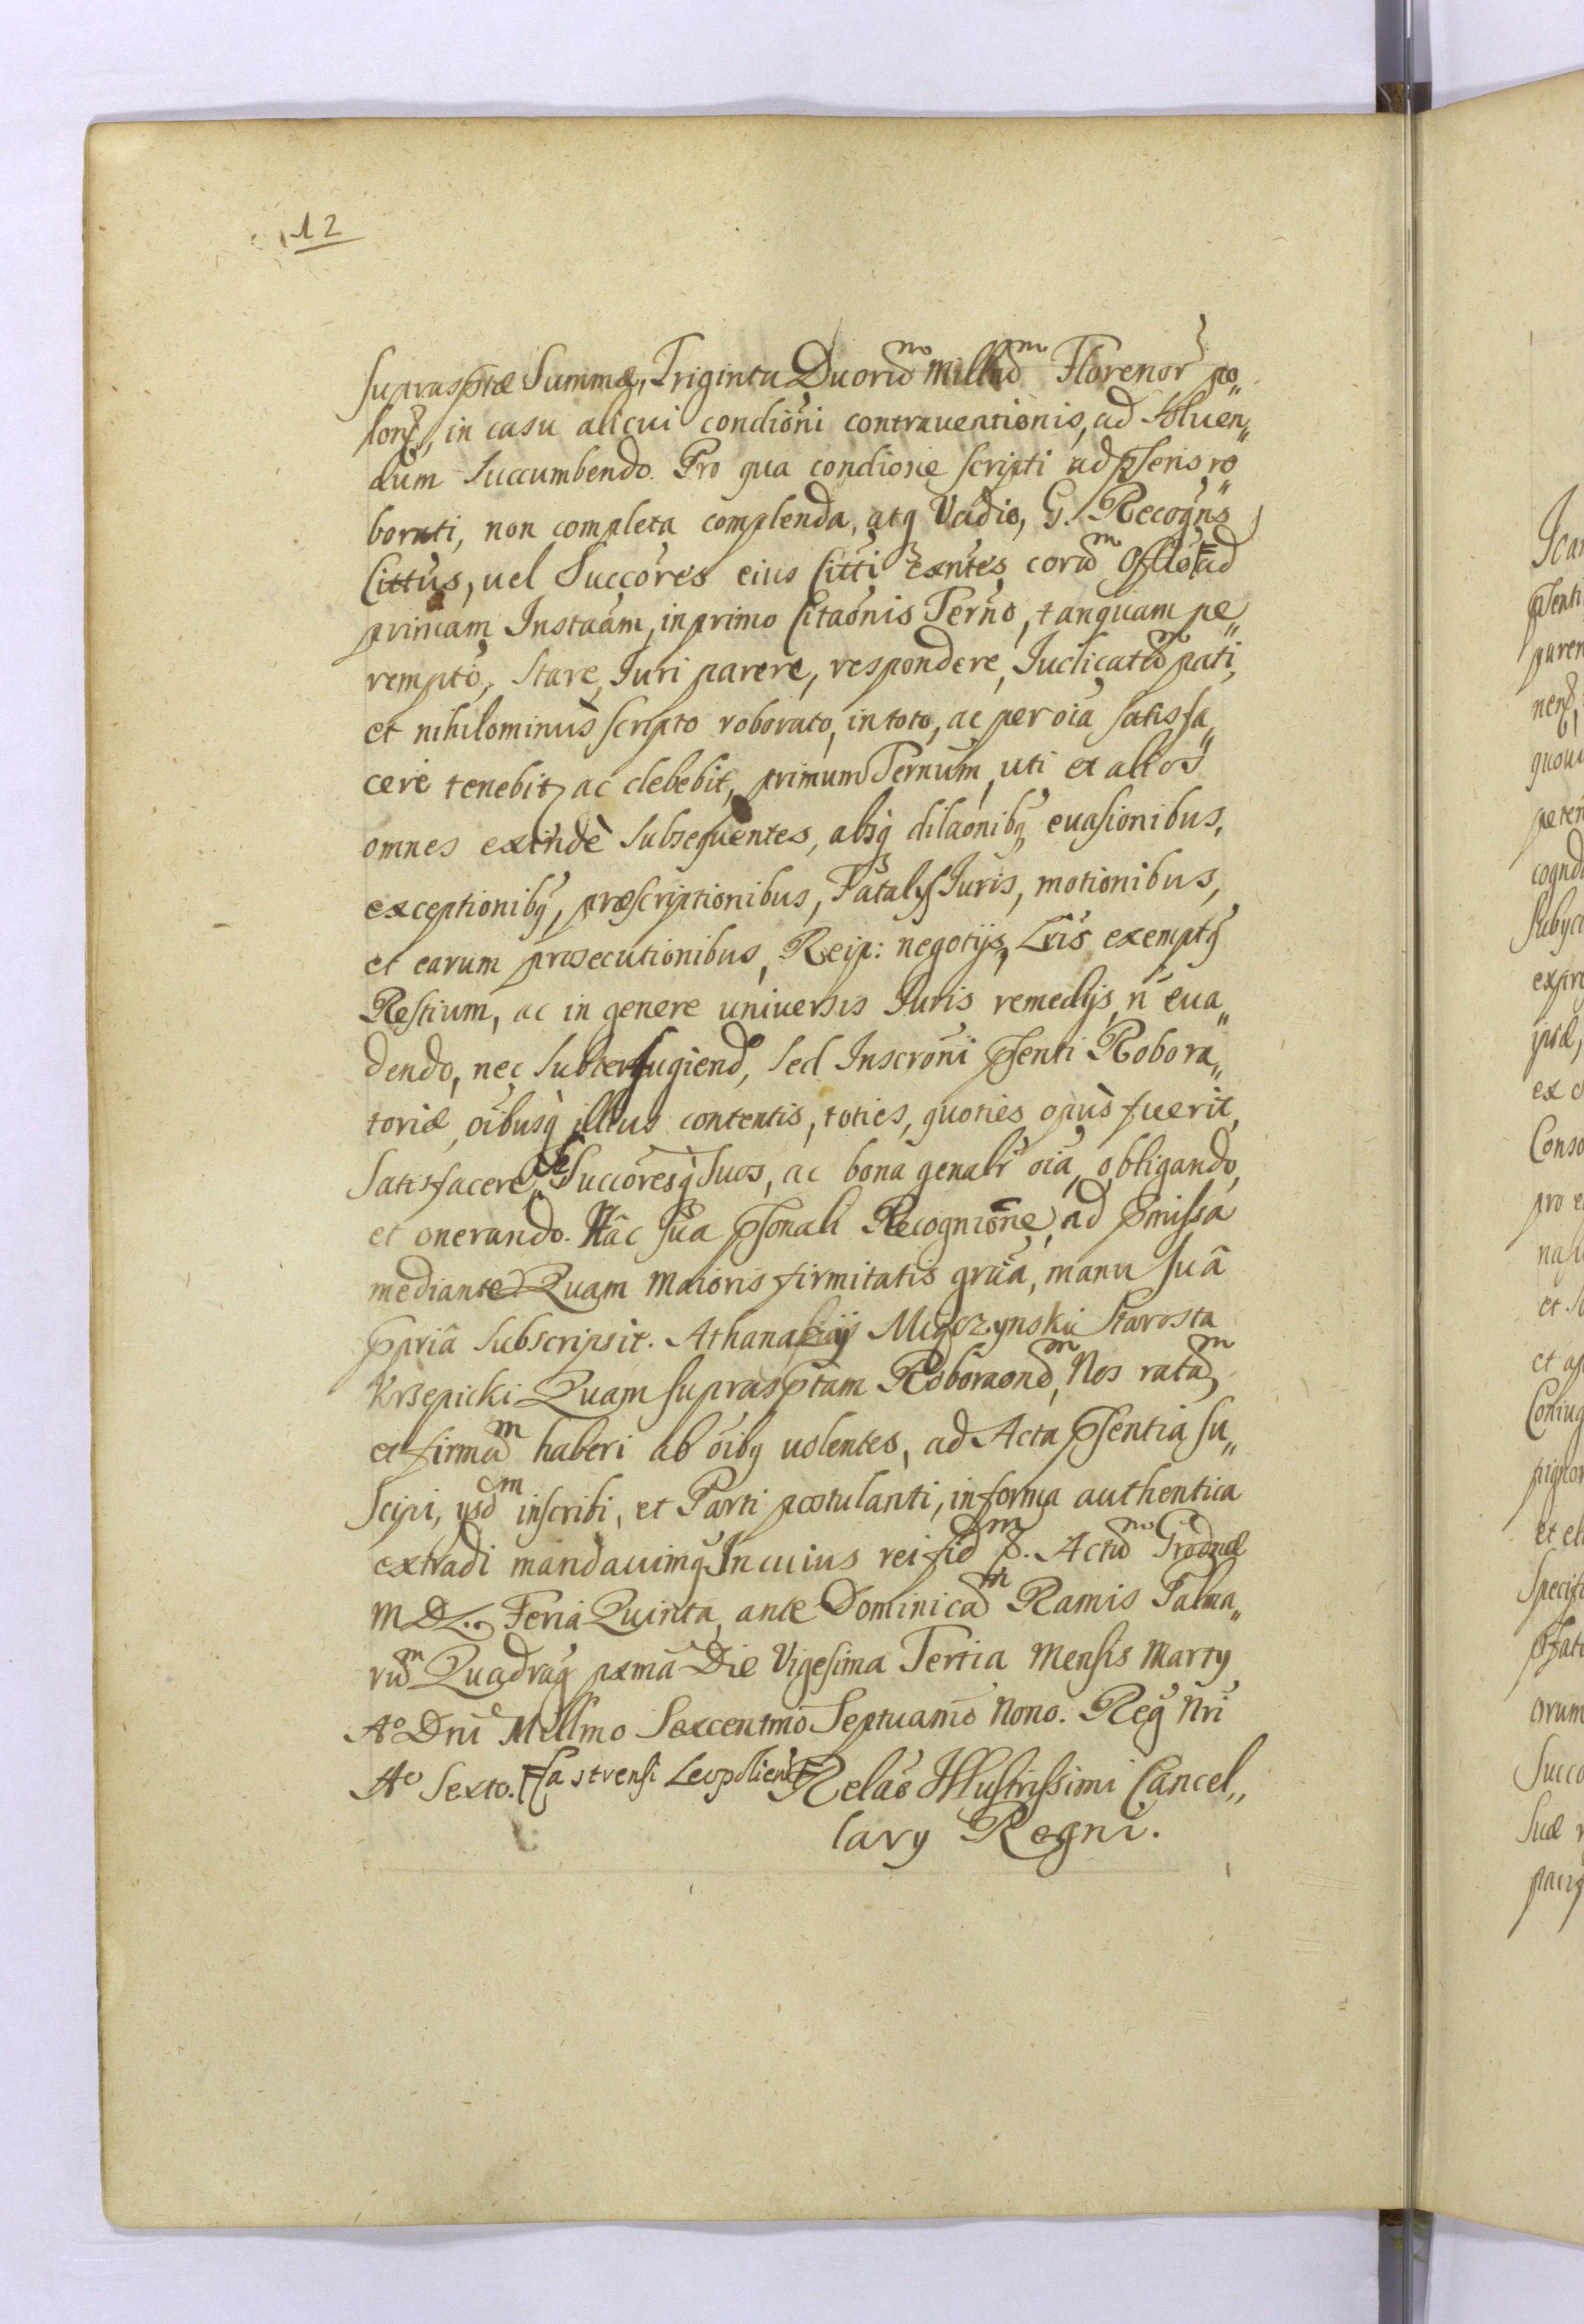 12
suprasptæ Summæ, Triginta Duorum Millium Florenor po„
lon̄, in casu alicui condiōni contrauentionis, ad soluen„
dum succumbendo. Pro qua condione scripti ad pñens ro„
borati, non completa complenda, atq Vadio, G. Recogn̄s
Cittus, uel Succōres eius Citti exn̄tes, coram Offo Ad
primam Instaām, in primo Citaōnis Terno, tanquam pe„
rempto, stare, Iuri parere, respondere, Iudicatum pati,
et nihilominùs scripto roborato, in toto, ac per oia satisfa„
cere tenebit, ac debebit, primum Ternum, uti et alios
omnes exindè subsequentes, absq dilaōnibq euasionibus,
exceptionibq, præscriptionibus, Fatalijs Iuris, motionibus,
et earum prosecutionibus, Reip: negotijs, Lris exemptq
Restium, ac in genere uniuersis Iuris remedijs, n̄ eua„
dendo, nec subterfugiend, sed Inscroni pñenti Robora„
toriæ, oibusq illius contentis, toties, quoties opùs fuerit,
satisfacere, Se Succōresq Suos, ac bona genalr oia, obligando,
et onerando. Hâc sua psonali Recogniōne, ad pmissa
mediante Quam maioris firmitatis grūa, manu suâ
ppriâ subscripsit. Athanasij Migczynski Starosta
Krzepicki Quam suprasptam Roborāonem, Nos ratam
et firmam haberi ab oibq uolentes, ad Acta psentia su„
scipi, ijsdm inscribi, et Parti postulanti, in forma authentica
extradi mandauimq In cuius rei fidem p. Actum Grodnæ
M D L. Feria Quinta, ante Dominicam Ramis Palma„
rum Quadrag pxma Die Vigesima Tertia Mensis Martij
Aº Dni Millmo Sexcentmo Septuamo Nono. Reg Nri
Aº Sexto. Castrensi Leopolien Relaō Illustrissimi Cancel„
larij Regni.